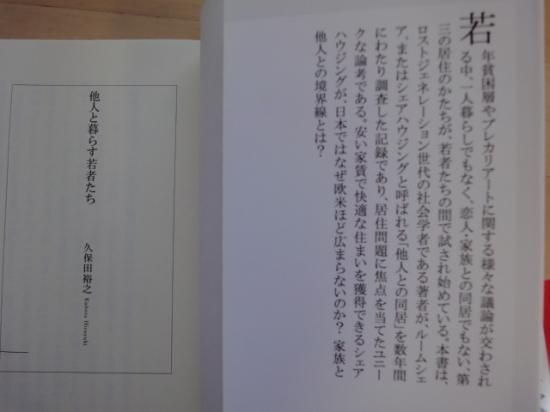 若年貧困層やプレカリアートに関する様々な議論が交わされ
る中、一人暮らしでもなく、恋人・家族との同居でもない、第
三の居住のかたちが、若者たちの間で試され始めている。本書は、
ロストジェネレーション世代の社会学者である著者が、ルームシェ
ア、またはシェアハウジングと呼ばれる「他人との同居」を数年間
にわたり調査した記録であり、居住問題に焦点を当てたユニー
クな論考である。安い家賃で快適な住まいを獲得できるシェア
ハウジングが、日本ではなぜ欧米ほど広まらないのか？ 家族と
他人との境界線とは？
他人と暮らす若者たち
久保田裕之 Kubota Hiroyuki